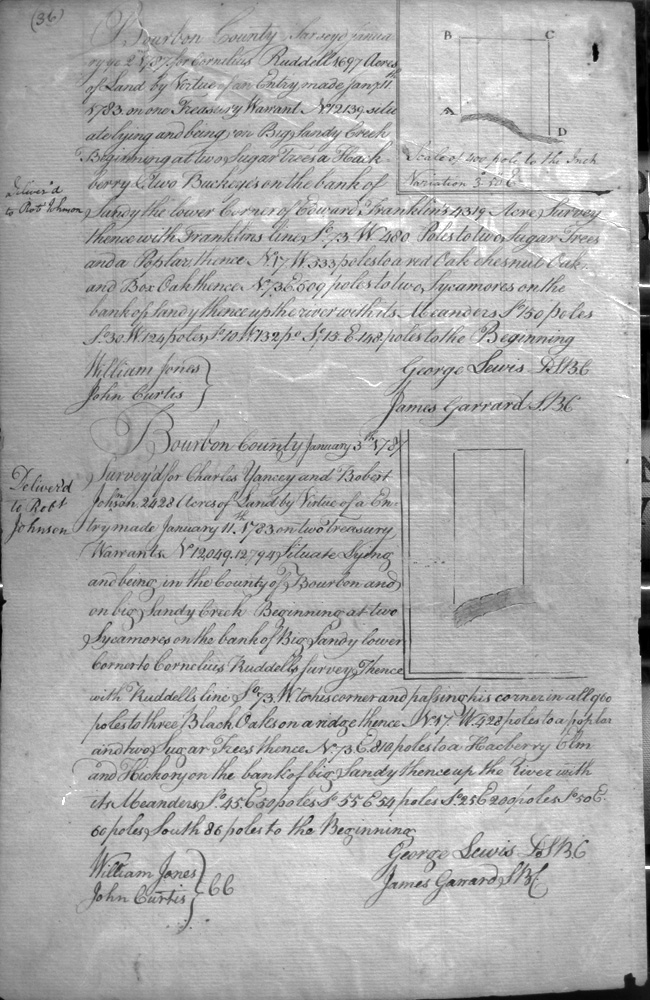 (36)
Bourbon County Surveyd Janua
ry ye 2d 1787 for Cornelius Ruddell 1697 Acres
of Land by Virtue of an Entry made Jany 11th
1783. on one Treasury Warrant No 12139 situ
ate lying and being on Big Sandy Creek
Beginning at two Sugar Trees a Hack
berry & two Buckeye's on the bank of
Sandy the lower Corner of Edward Franklin's 4319 Acre Survey
thence with Franklins line So 73 W 480 Poles to two Sugar Trees
and a Poplar, thence No 17 W 333 poles to a red Oak chesnut Oak
and Box Oak thence No 73 E 509 poles to two Sycamores on the
bank of Sandy thence up the river with its Meanders So 150 poles
So 30 W 124 poles So 10 W 132 po So 15 E 148 poles to the Beginning
William Jones
John Curtis
George Lewis D.S.B.C
James Garrard S.B.C
B C
A D
Scale of 400 pole to the Inch
Variation 3°.50 E
Deliver'd
to Robt Johnson
Bourbon County January 3th 1787
Survey'd for Charles Yancey and Robert
Johnson 2428 Acres of Land by Virtue of a En
try made January 11th 1783 on two treasury
Warrants No 12,049. 12,794 Situate Lying
and being in the County of Bourbon and
on big Sandy Creek Beginning at two
Sycamores on the bank of Big Sandy lower
Corner to Cornelius Ruddell's survey, Thence
with Ruddells line So 73. W. to his corner and passing his corner in all 960
poles to three Black Oaks on a ridge thence No 17 W. 428 poles to a poplar
and two Sugar Trees thence No 73 E 810 poles to a Hacberry Elm
and Hickory on the bank of big Sandy thence up the river with
its Meanders So 45 E 50 poles So 55 E 54 poles So 25 E 200 poles So 50 E.
60 poles, South 86 poles to the Beginning
William Jones
John Curtis
66
George Lewis D.S.B.C
James Garrard S.B.C
Deliver'd
to Robt
Johnson